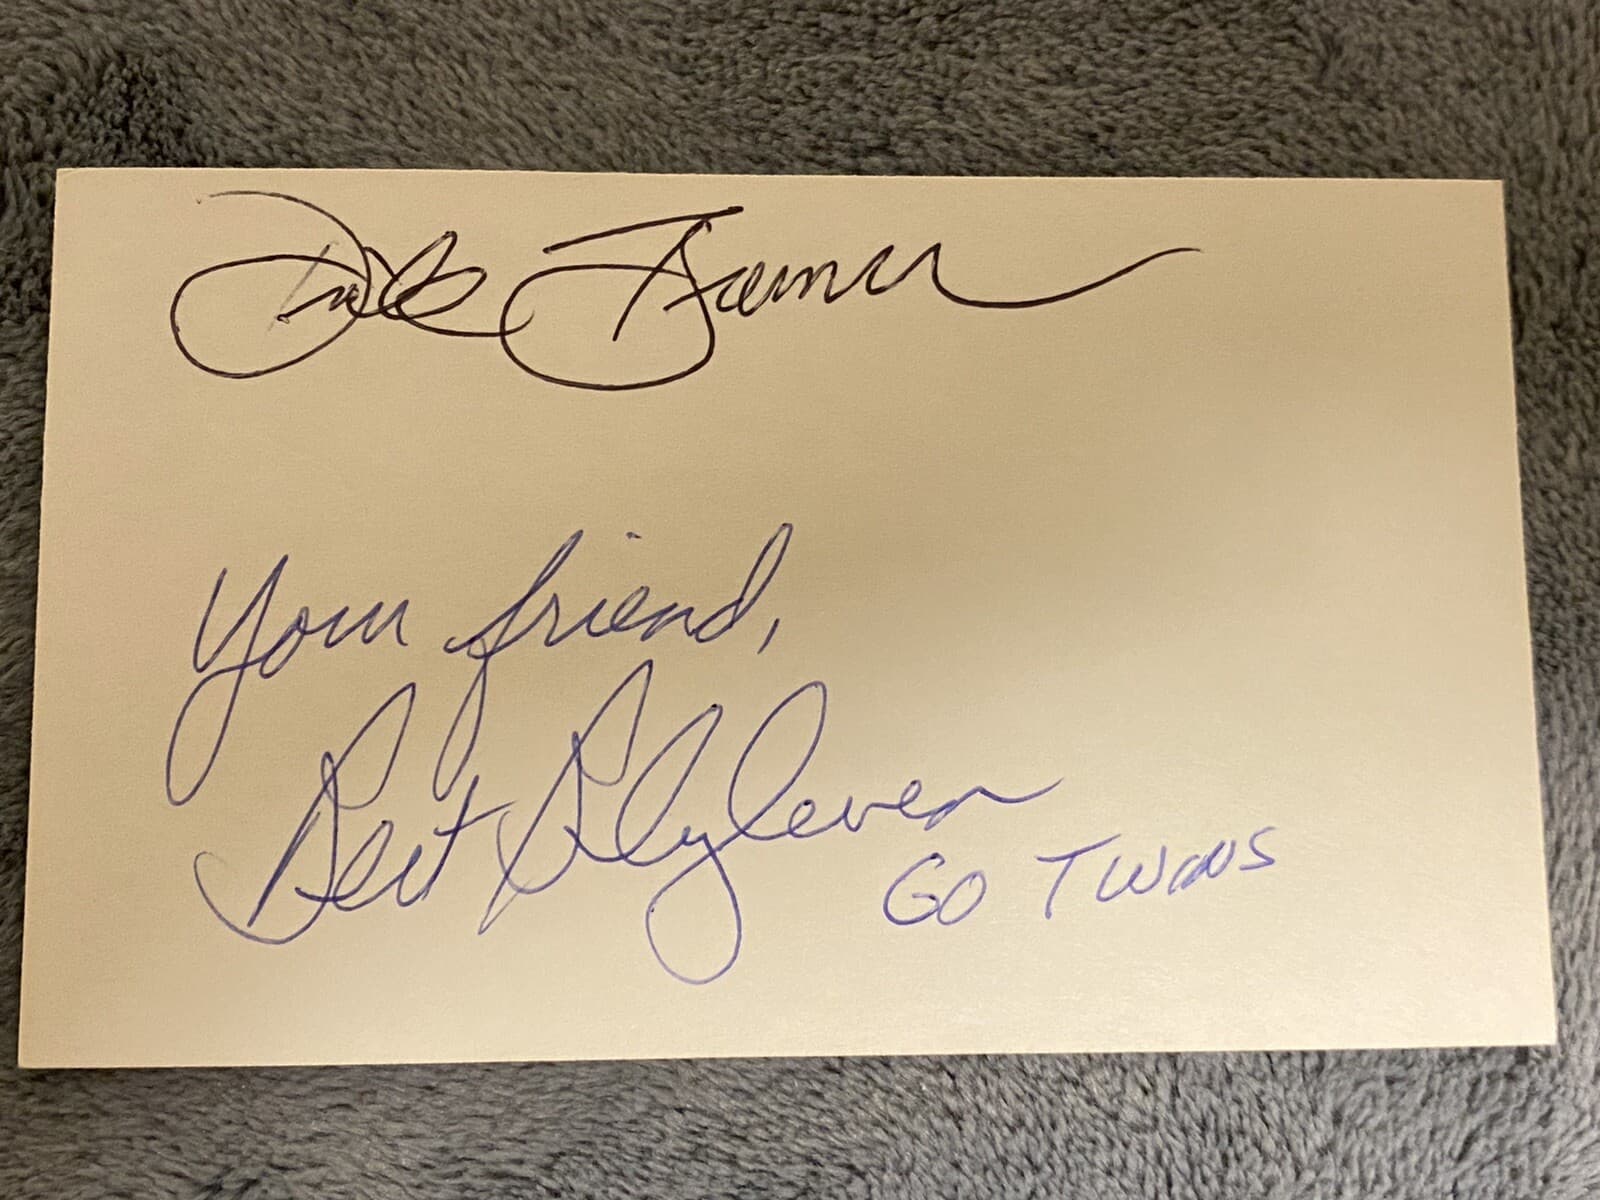 Dick Bremer
Your friend,
Bert Blyleven
GO TWINS